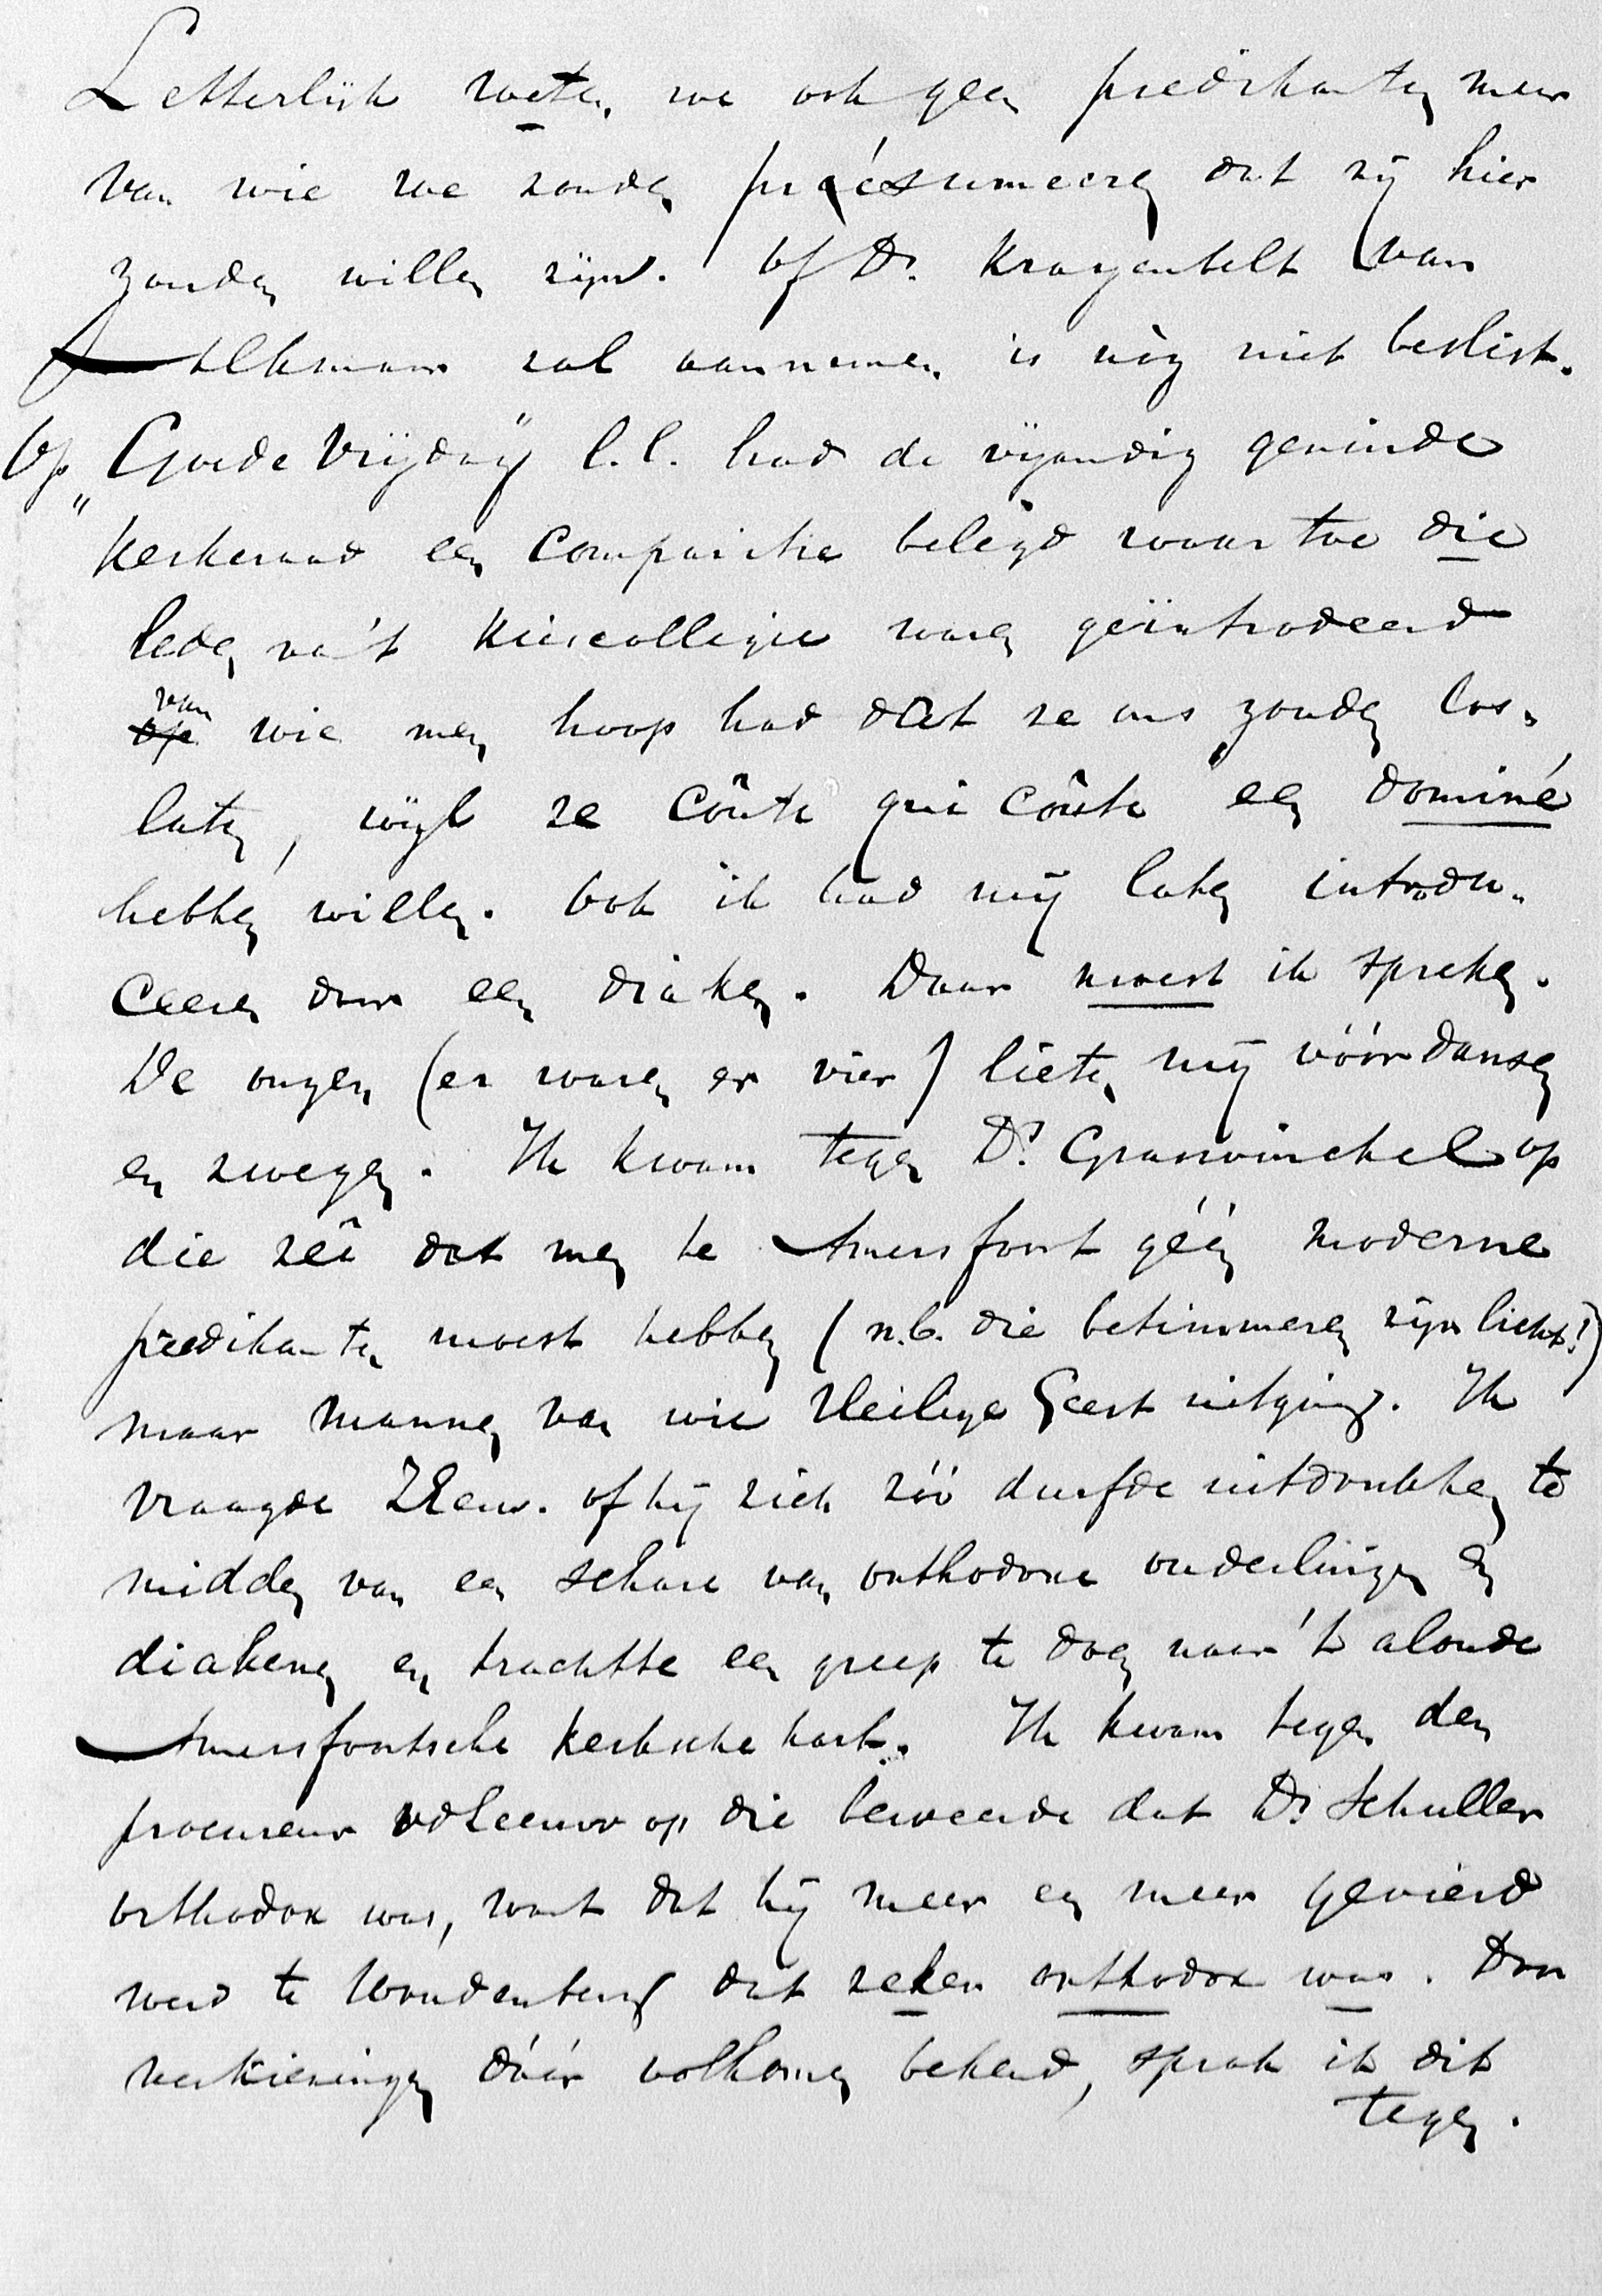 Letterlijk weten we ook geen predikanten meer
van wie we zouden praésumeeren dat zij hier
zouden willen zijn. Of Ds. Kragenbelt van
Alkmaar zal aannemen is nòg niet beslist.
Op „Goede Vrijdag" l.l. had de vijandig gezinde
kerkeraad een comparitie belegd waartoe die
leden va't Kiescollegie waren geïntrodeerd
van wie men hoop had dat ze ons zouden los-
laten, wijl ze coûte qui coûte een dominé
hebben willen. Ook ik had mij laten introdu-
ceeren door een diaken. Daar moest ik spreken.
De onzen (er waren er vier) lieten mij vóórdansen
en zwegen. Ik kwam tegen Ds. Graswinckel op
die zeî dat men te Amersfoort géén moderne
predikanten moest hebben (n.b. die betimmeren zijn licht!)
maar mannen van wie Heilige Geest uitging. Ik
vraagde ZEerw. of hij zich zóó durfde uitdrukken te
midden van een schare van orthodoxe ouderlingen en
diakenen en trachtte een greep te doen naar 't aloude
Amersfoortsche kerksche hart. Ik kwam tegen den
procureur vdLeeuw op die beweerde dat Ds Schuller
orthodox was, want dat hij meer en meer gevierd
werd te Woudenberg dat zeker orthodox was. Door
verkiezingen dáár volkomen bekend, sprak ik dit
tegen.